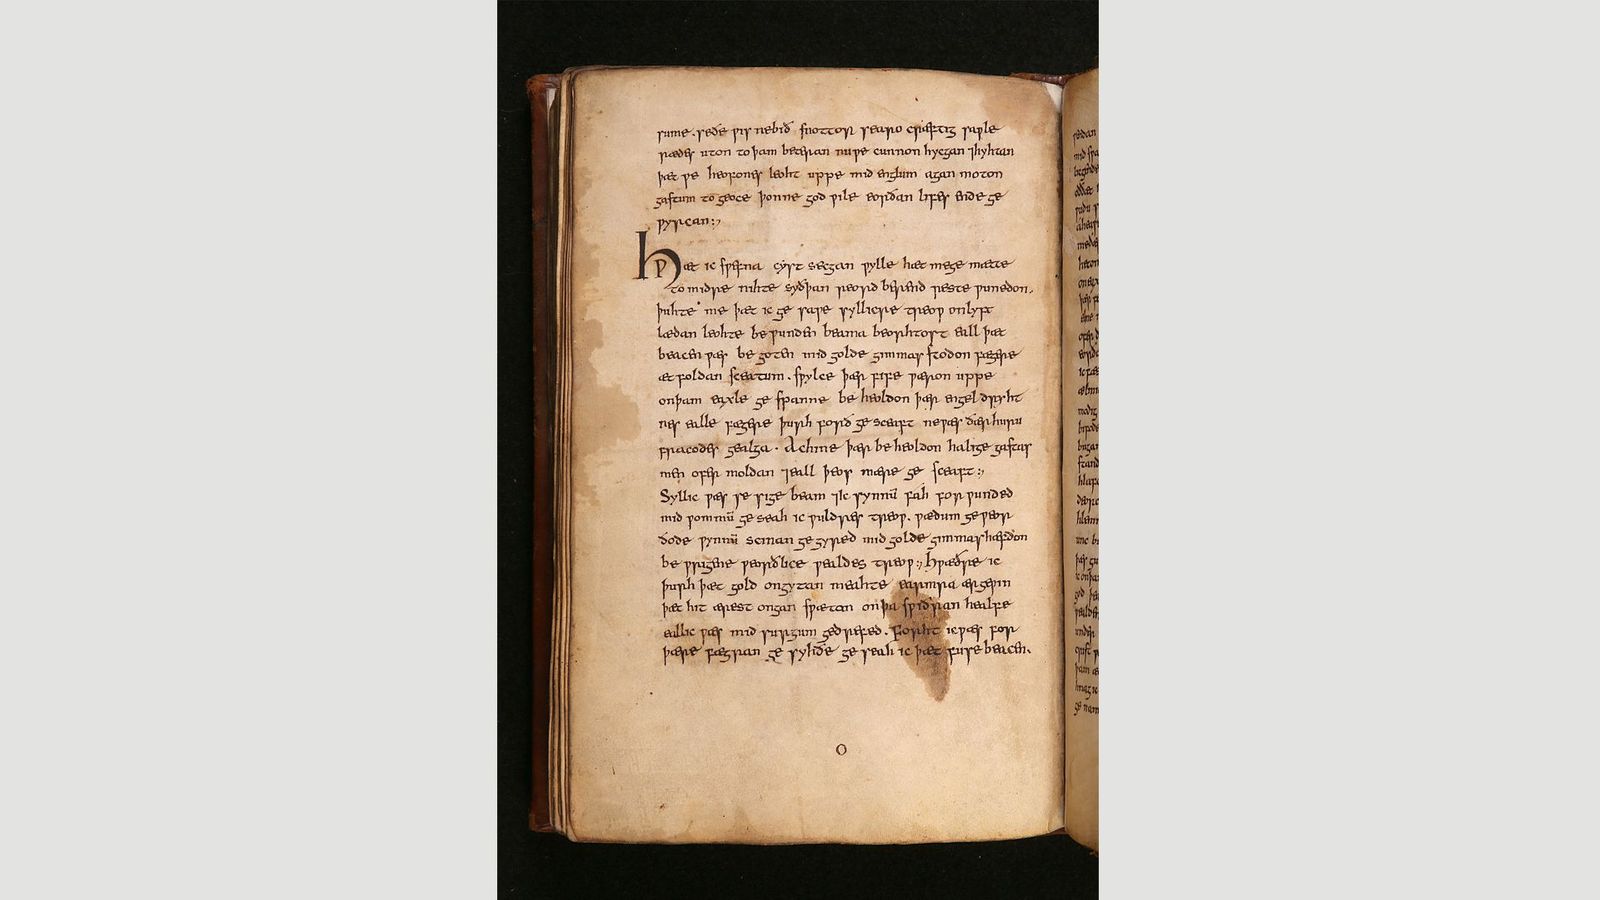 sume. sede þis nebið snottor searo cræftig saƿle
rædes uton to þam beteran nuƿe cunnon hycgan ⁊hyhtan
þæt ƿe heofones leoht uppe mid englum agan moton
gastum to geoce þonne god ƿile eorðan lifes ende ge
ƿyrcan:,
Hƿæt ic sƿefna cyst secgan ƿylle hæt mege mætte
to midre nihte syðþan reord berend reste ƿunedon.
þuhte me þæt ic ge saƿe syllicre treoƿ onlyft
lædan leohte be ƿunden beama beorhtost eall þæt
beacen ƿæs be goten mid golde gimmas stodon fægere
æt foldan sceatum. sƿylce þær fife ƿæron uppe
onþam eaxle ge spanne be heoldon þær engel dryht
nes ealle fægere þurh forð ge sceaft ne ƿæs ðær huru
fracodes gealga. Achine þær be heoldon halige gastas
men ofer moldan ⁊eall þeos mære ge sceaft:,
Syllic ƿæs se sige beam ⁊ic synnū fah for ƿunded
mid ƿommū ge seah ic ƿuldres treoƿ. ƿædum ge ƿeor
ðode ƿynnū scinan ge gyred mid golde gimmas hæfdon
be ƿrigene ƿeorðlice ƿealdes treoƿ:, hƿæðre ic
þurh þæt gold ongytan meahte earmra ær geƿin
þæt hit ærest ongan sƿætan on þa sƿiðran healfe
eallic ƿæs mid surgum gedrefed. forht ic ƿæs for
þære fægran ge syhðe ge seah ic þæt fuse beacen.